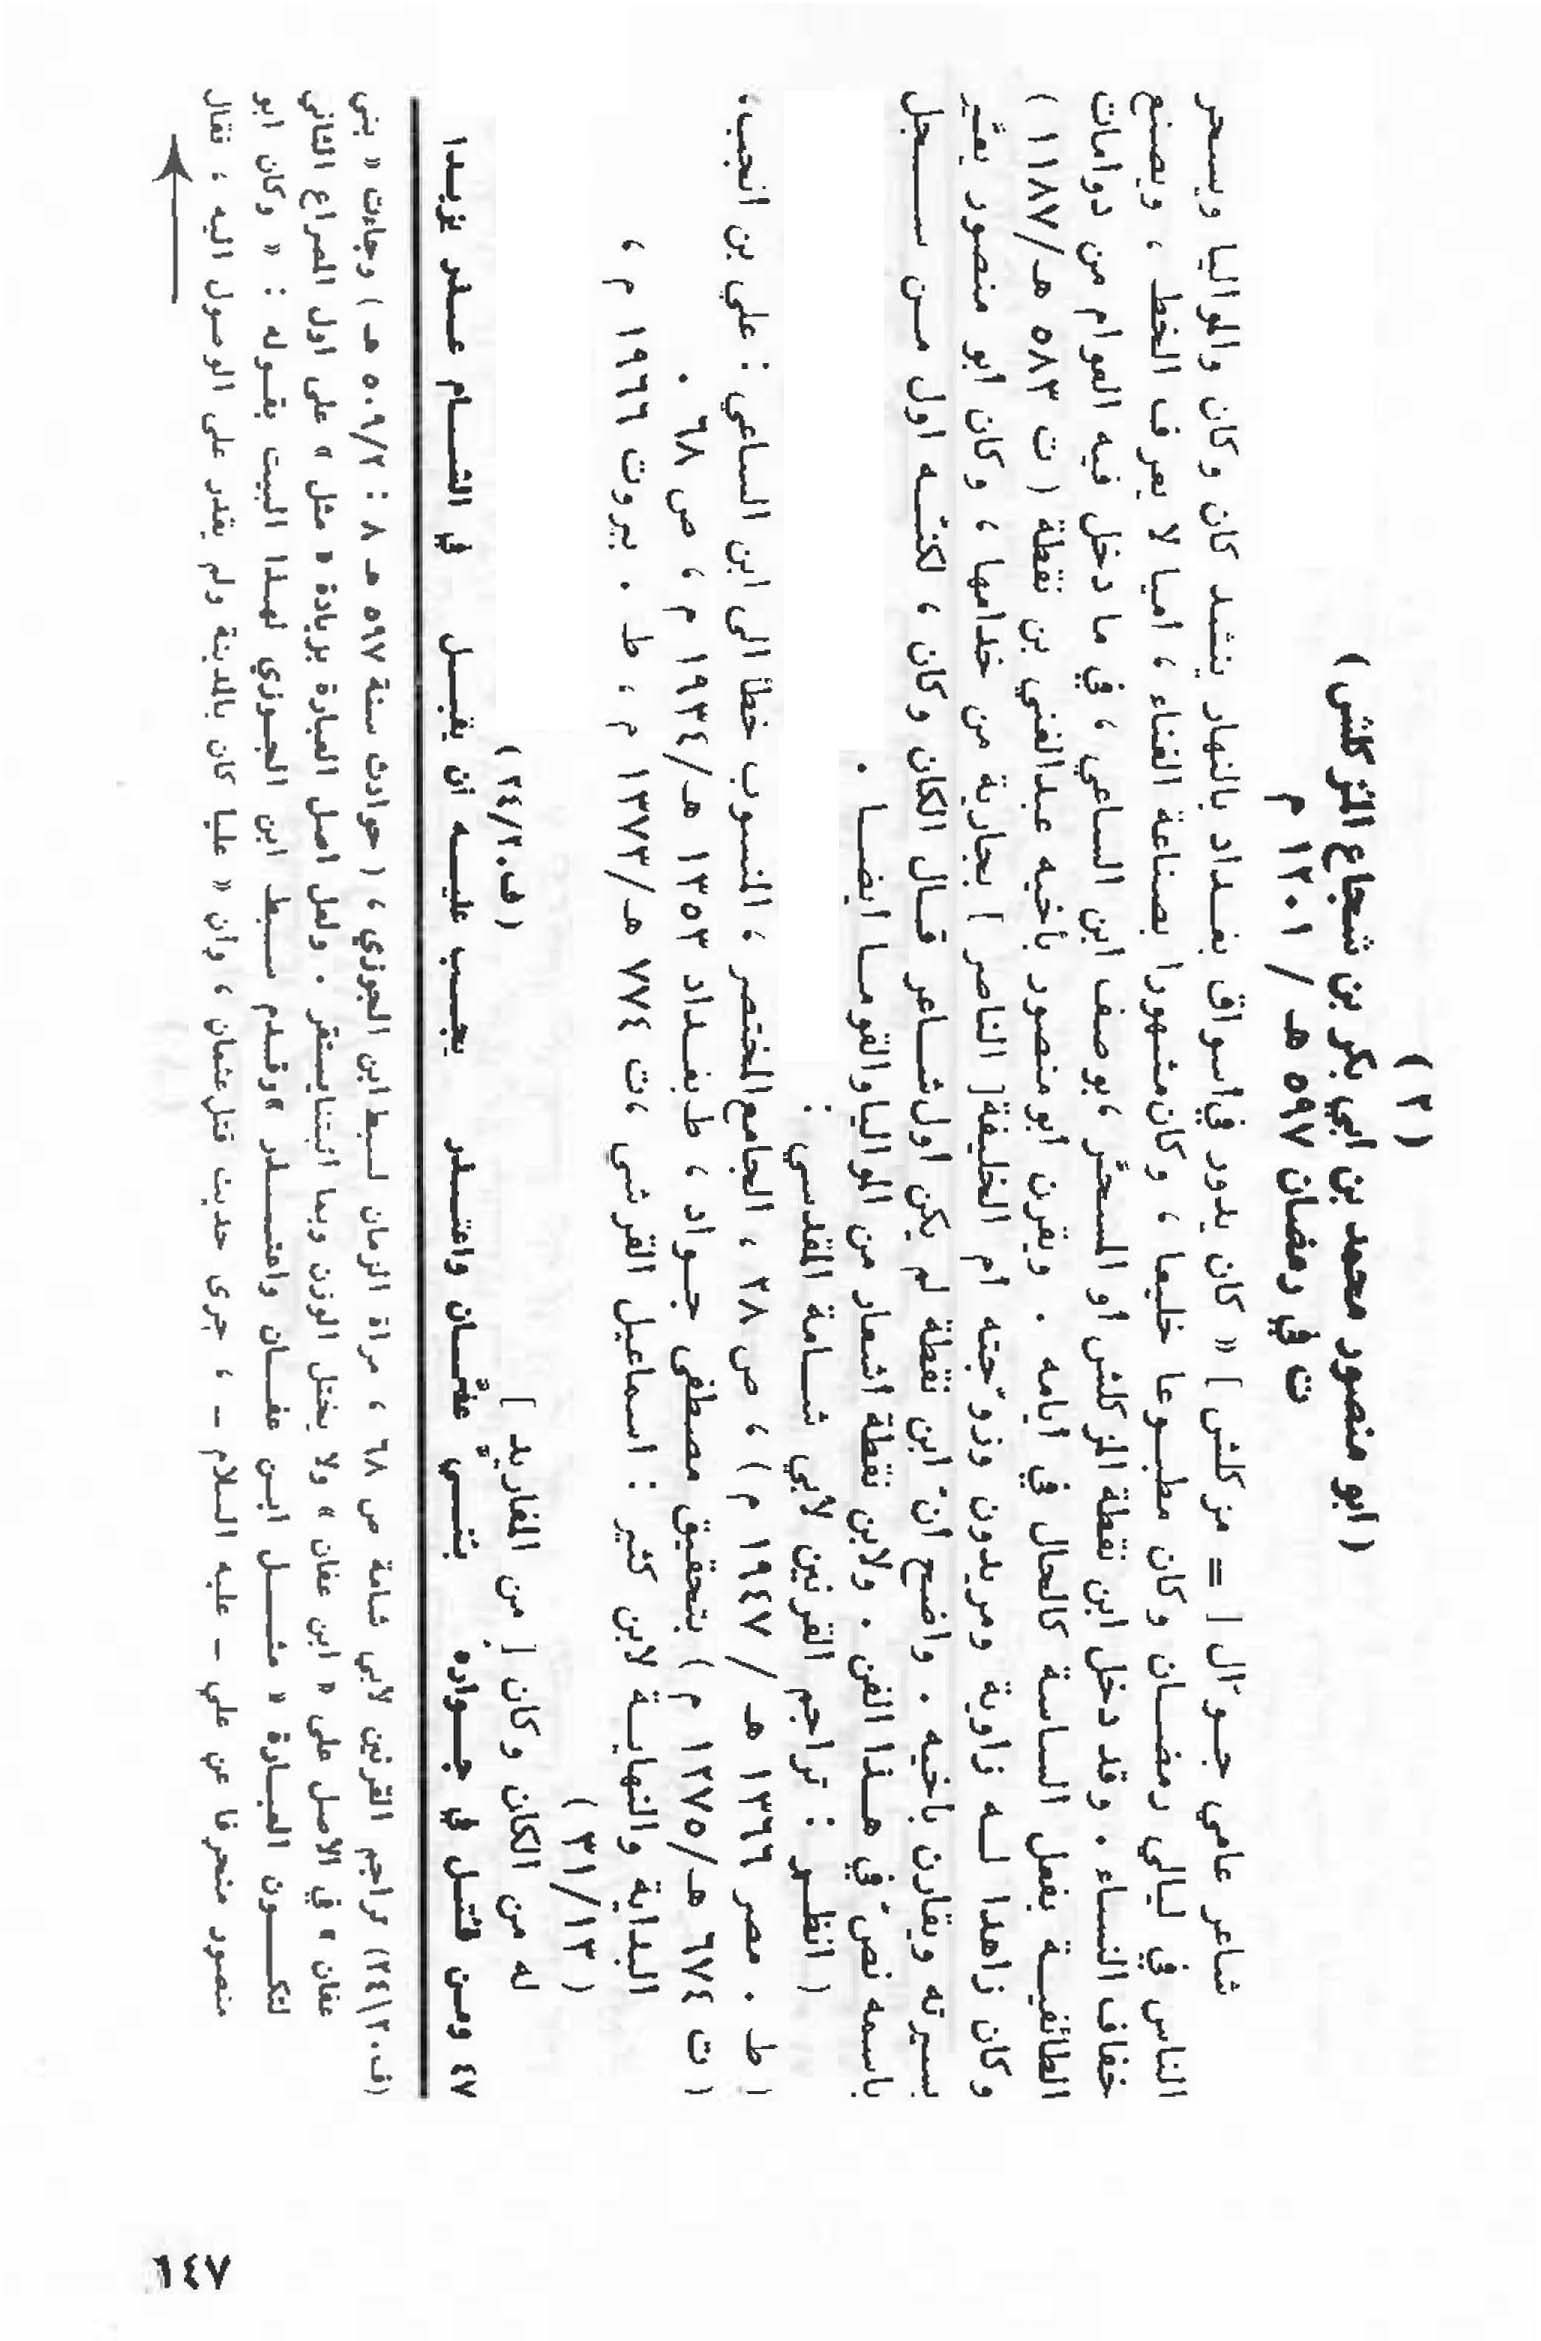 ( ٢ )
( ابو منصور محمد بن ابي بكر بن شجاع المُزكلش )
ت في رمضان ٥٩٧ هـ / ١٢٠١ م
شاعر عامي جـوّال [ = مزكلش ] « كان يدور في اسواق بغـداد بالنهار ينشد كان وكان والمواليا ويسحر
الناس في ليالي رمضـان وكان مطبـوعا خليعا ، وكان مشهورا بصناعة الغناء ، اميا لا يعرف الخط ، ويصنع
خفاف النساء . وقد دخل ابن نقطة المزكلش او المسحّر ، بوصف ابن الساعي ، في ما دخل فيه العوام من دوامات
الطائفيـة بفعل الساسة كالحال في ايامه . ويقرن ابو منصور بأخيه عبدالغني بن نقطة ( ت ٥٨٣ هـ/١١٨٧ )
وكان زاهدا لـه زاوية ومريدون وزوّجته ام الخليفة [ الناصر ] بجارية من خدامها ، وكان ابو منصور يعيّر
بسيرته ويقارن باخيه . واضح انّ ابن نقطة لم يكن اول شـاعر قـال الكان وكان ، لكنّـه اول مـن سـجل
باسمه نصّ في هـذا الفن . ولابن نقطة اشعار من المواليا والقومـا ايضـا .
( انظـر : تراجم القرنين لأبي شـامة المقدسي :
( ط . مصر ١٣٦٦ هـ / ١٩٤٧ م ) ، ص ٢٨ ، الجامع المختصر ، المنسوب خطأ الى ابن الساعي : علي بن انجب ،
( ت ٦٧٤ هـ/١٢٧٥ م ) بتحقيق مصطفى جـواد ، ط بغـداد ١٣٥٣ هـ/١٩٣٤ م ، ص ٦٨ .
البداية والنهايـة لابن كثير : اسماعيل القرشي ، ت ٧٧٤ هـ/١٣٧٣ م ، ط . بيروت ١٩٦٦ م ،
( ١٣/٣١ )
له من الكان وكان [ من المفاريد ]
( ف٢٤/٢٠ )
٤٧ ومـن قُتـل في جـواره بنـي عفّـان واعتـذر يجـب عليـه أن يقبـل في الشـام عـذر يزيـدا
(ف٢٤/٢٠) تراجم القرنين لأبي شامة ص ٦٨ ، مرآة الزمان لسبط ابن الجوزي ، ( حوادث سنة ٥٩٧ هـ ٨ : ٥٠٩/٢ هـ ) وجاءت « بني
عفان » في الاصل على « ابن عفان » ولا يختل الوزن وبما اثبتنا يستقر . ولعل اصل العبارة بزيادة « مثل » على اول المصراع الثاني
لتكـون العبـارة « مثـل ابـن عفـان واعتـذر » وقـدم سـبط ابن الجـوزي لهـذا البيت بقـوله : « وكان ابو
منصور منحرفا عن علي – عليه السلام – ، جرى حديث قتل عثمان ، وأن « عليا كان بالمدينة ولم يقدر على الوصول اليه ، فقال
١٤٧